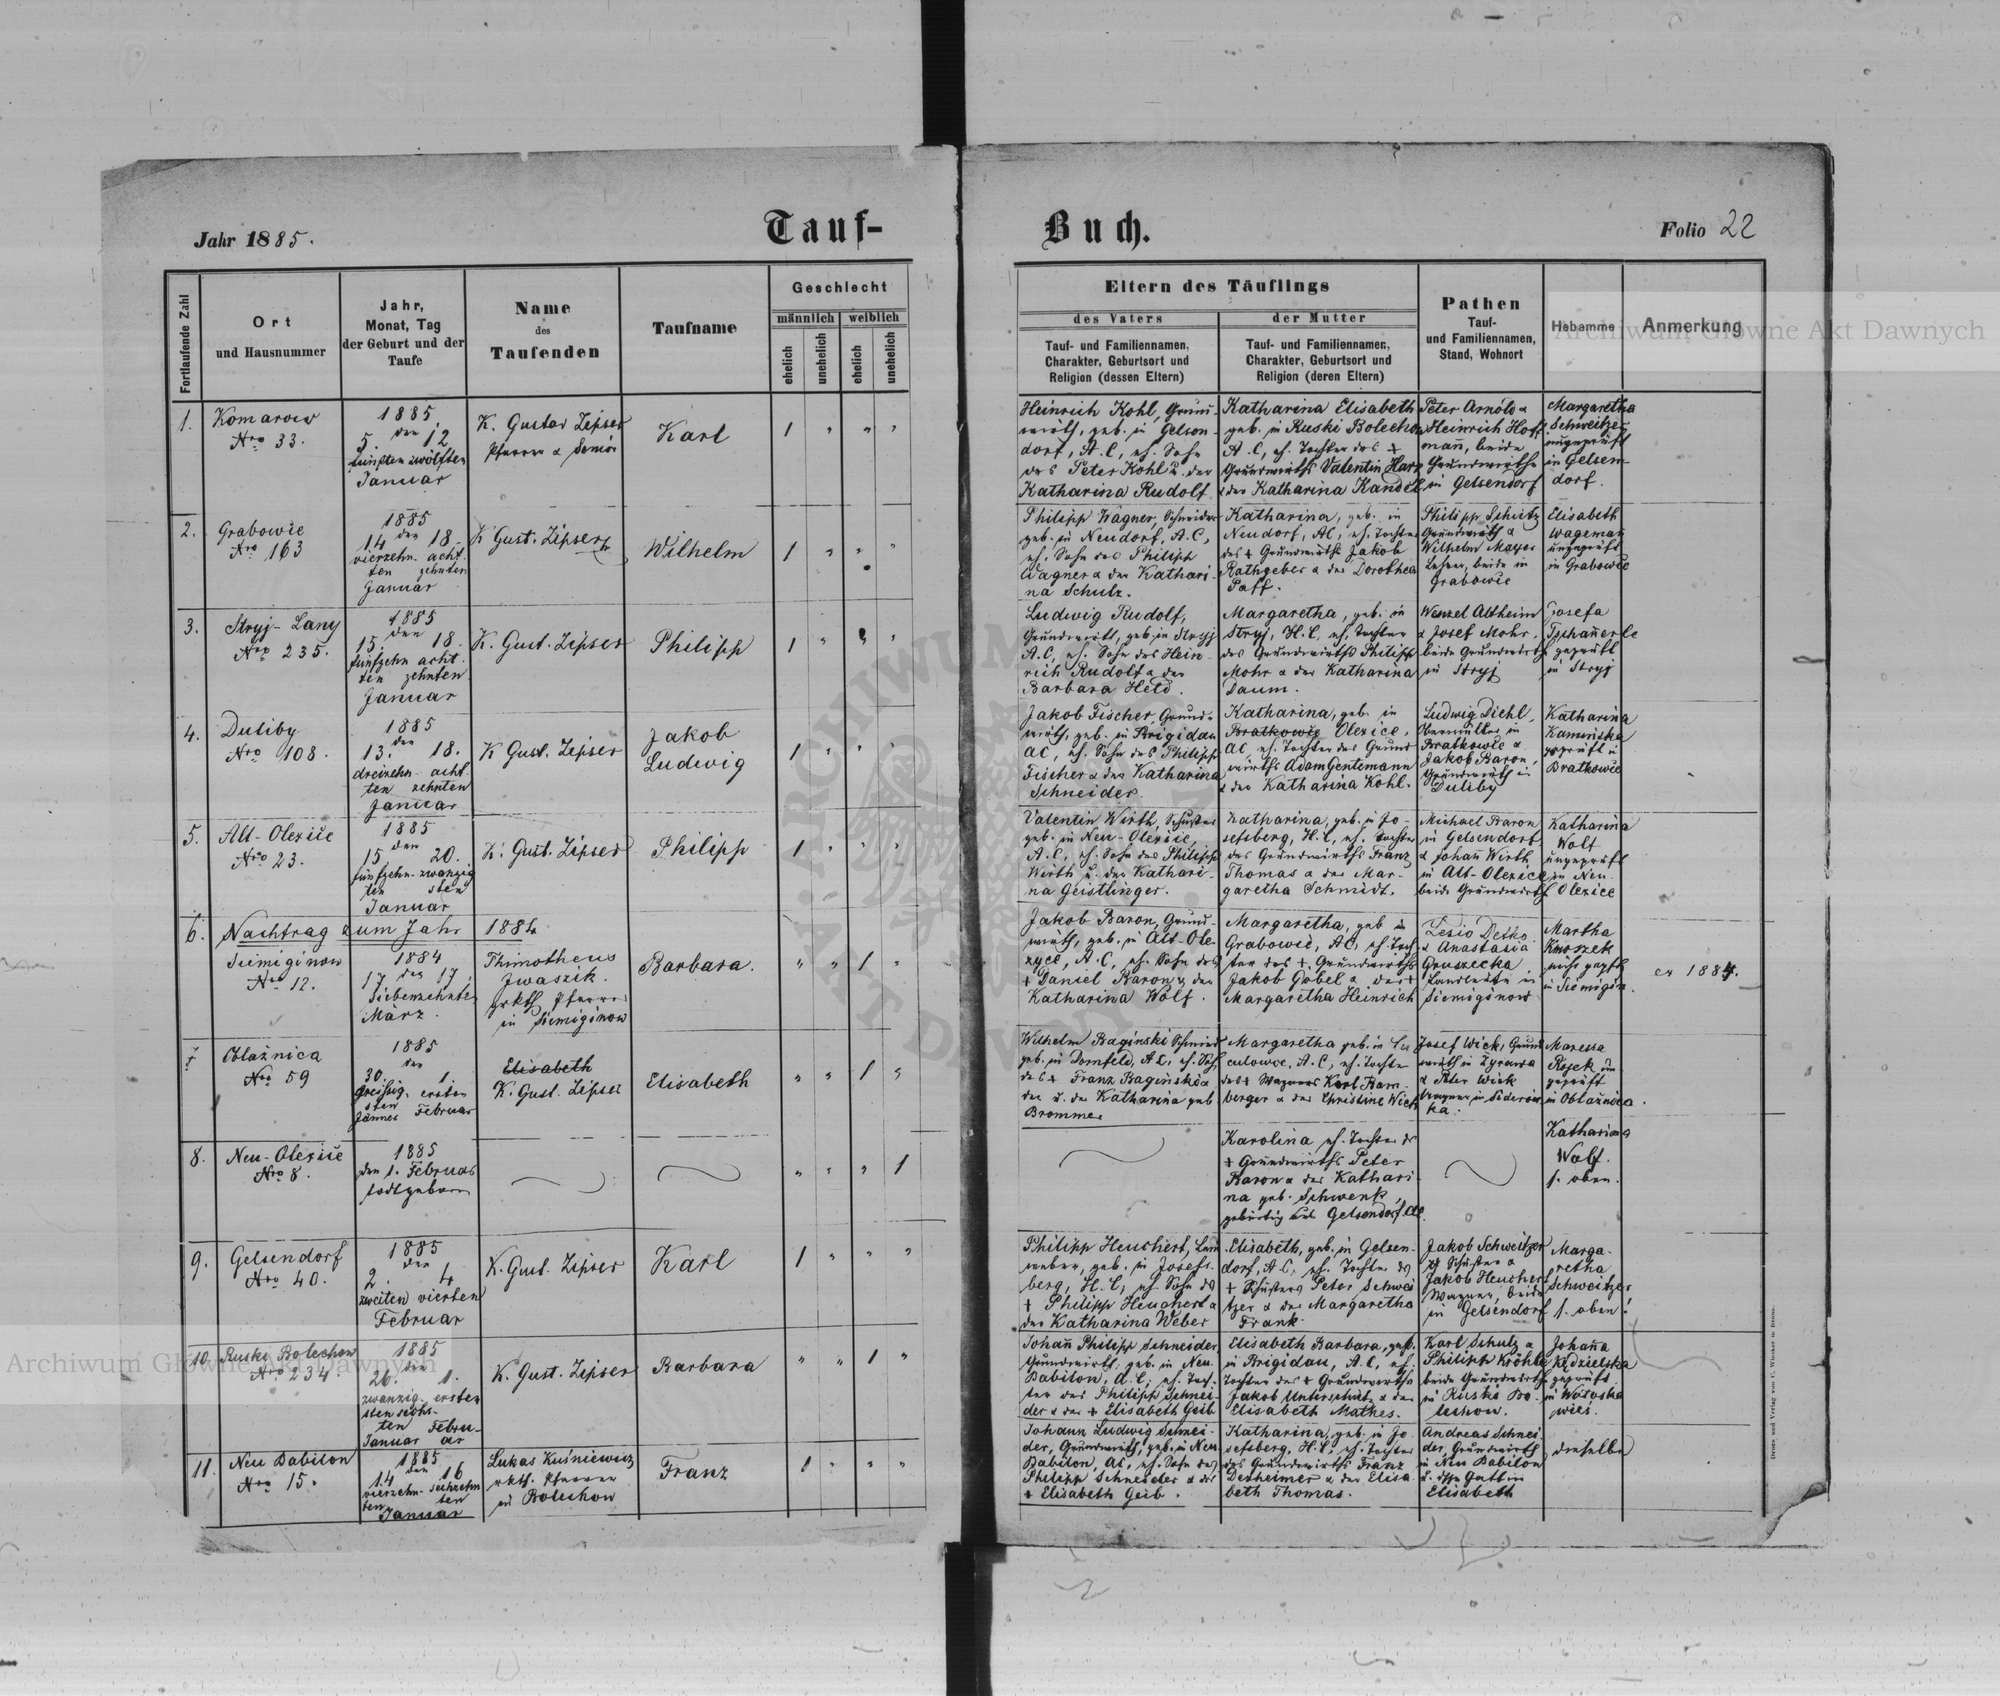 Jahr 1885.
Tauf-
Buch.
Folio 22
Fortlaufende Zahl
Ort
und Hausnummer
Jahr,
Monat, Tag
der Geburt und der
Taufe
Name
des
Taufenden
Taufname
Geschlecht
männlich
weiblich
ehelich
unehelich
ehelich
unehelich
Eltern des Täuflings
des Vaters
der Mutter
Tauf- und Familiennamen,
Charakter, Geburtsort und
Religion (dessen Eltern)
Tauf- und Familiennamen,
Charakter, Geburtsort und
Religion (deren Eltern)
Pathen
Tauf-
und Familiennamen,
Stand, Wohnort
Hebamme
Anmerkung
1.
Komarow
Nro 33.
1885
den
5. 12.
fünften zwölften
Januar
K. Gustav Zipser
Pfarrer & Senior
Karl
1 " " "
Heinrich Kohl, Grund-
wirth, geb. in Gelsen-
dorf, A.C., eh. Sohn
des Peter Kohl u. der
Katharina Rudolf
Katharina Elisabeth
geb. in Ruski Bolechow
A.C., eh. Tochter des +
Grundwirths Valentin Harz
& der Katharina Kandel
Peter Arnold &
Heinrich Hoff-
mann, beide
Grundwirthe
in Gelsendorf
Margaretha
Schweitzer
ungeprüft
in Gelsen-
dorf.
2.
Grabowie
Nro 163
1885
den
14 18.
vierzehn- acht-
ten zehnten
Januar
K Gust. Zipser
Wilhelm
1 " " "
Philipp Wagner, Schneider
geb. in Neudorf, A.C.,
eh. Sohn des Philipp
Wagner & der Kathari-
na Schulz.
Katharina, geb. in
Neudorf, AC, eh. Tochter
des + Grundwirths Jakob
Rathgeber & der Dorothea
Paff.
Philipp Schütz
Grundwirth &
Wilhelm Mayer
Lehrer, beide in
Grabowie
Elisabeth
Wageman
ungeprüft
in Grabowie
3.
Stryj- Lany
Nro 235.
1885
den
15. 18.
fünfzehn acht-
ten zehnten
Januar
K. Gust. Zipser
Philipp
1 " " "
Ludwig Rudolf,
Grundwirth, geb. in Stryj
A.C., eh. Sohn des Hein-
rich Rudolf & der
Barbara Held.
Margaretha, geb. in
Stryj, H.C., eh. Tochter
des Grundwirths Philipp
Mohr & der Katharina
Daum.
Wenzel Altheim
& Josef Mohr.
beide Grundwirthe
in Stryj
Josefa
geprüft
in Stryj
4.
Duliby
Nro 108.
1885
den
13. 18.
dreizehn- acht-
ten zehnten
Januar
K Gust. Zipser
Jakob
Ludwig
1 " " "
Jakob Fischer, Grund-
wirth, geb. in Brigidau
AC, eh. Sohn des Philipp
Fischer & der Katharina
Schneider.
Katharina, geb. in
Bratkowie Olexice.
AC, eh. Tochter des Grund-
wirths Adam Gentemann
& der Katharina Kohl.
Ludwig Diehl,
Obermüller in
Bratkowie &
Jakob Baron,
Grundwirth in
Duliby
Katharina
Kaminska
geprüft in
Bratkowie
5.
Alt- Olexice
Nro 23.
1885
den
15 20.
fünfzehn- zwanzig
ten sten
Januar
K. Gust. Zipser
Philipp
1 " " "
Valentin Wirth, Schuster
geb. in Neu- Olexice,
A.C., eh. Sohn des Philipp
Wirth u. der Kathari-
na Geistlinger.
Katharina, geb. in Jo-
sefsberg, H.C., eh. Tochter
des Grundwirths Franz
Thomas & der Mar-
garetha Schmidt.
Michael Baron
in Gelsendorf
& Johann Wirth
in Alt- Olexice
beide Grundwirthe
Katharina
Wolf
ungeprüft
in Neu-
Olexice
6.
Nachtrag zum Jahr 1884
Siemiginow
Nro 12.
1884
den
17 17.
Siebenzehnten
März.
Thimotheus
Jwaszik.
grkth Pfarrer
in Siemiginow
Barbara.
" " 1 "
Jakob Baron, Grund-
wirth, geb. in Alt- Ole-
xyce, A.C., eh. Sohn des
+ Daniel Baron & der
Katharina Wolf.
Margaretha, geb. in
Grabowie, AC, eh. Toch-
ter des + Grundwirths
Jakob Göbel & der +
Margaretha Heinrich
Lesio Detko
& Anastasia
Gruszecka
Landleute in
Siemiginow
Martha
in Siemigin.
ex 1884.
7
Oblaźnica
Nro 59
1885
den
30. 1.
dreißig- ersten
sten
Jänner Februar
Elisabeth
K. Gust. Zipser
Elisabeth
" " 1 "
Wilhelm Baginski Schmied
geb. in Dornfeld, AC, eh. Sohn
des + Franz Baginski &
der u. der Katharina geb
Brommer
Margaretha geb. in
A.C., eh. Tochter
des + Wagners Karl Bam-
berger & der Christine Wick
Josef Wick, Grund-
wirth in Zyrawa
& Peter Wick
Maressa
geprüft
in Oblaźnica.
8.
Neu- Olexice
Nro 8.
1885
den 1. Februar
todtgeboren
" " " 1
Karolina eh. Tochter des
+ Grundwirths Peter
Baron & der Kathari-
na geb. Schwenk,
gebürtig aus Gelsendorf. AC.
Katharina
Wolf.
s. oben.
9.
Gelsendorf
Nro 40.
1885
den
2. 4
zweiten vierten
Februar
K. Gust. Zipser
Karl
1 " " "
Philipp Heuchert, Lein-
weber, geb. in Josefs-
berg, H.C., eh. Sohn des
+ Philipp Heuchert &
der Katharina Weber
Elisabeth, geb. in Gelsen-
dorf, A.C., eh. Tochter des
+ Schusters Peter Schwei-
tzer & der Margaretha
Frank.
Jakob Schweitzer
Schuster &
Jakob Heuchert
Wagner, beide
in Gelsendorf
Marga-
retha
Schweitzer
s. oben!
10.
Ruski Bolechow
Nro 234.
1885
den
26. 1.
zwanzig- ersten
sten sechs-
ten Febru-
Januar ar
K. Gust. Zipser
Barbara
" " 1 "
Johann Philipp Schneider
Grundwirth, geb. in Neu-
Babilon, A.C., eh. Toch-
ter des Philipp Schnei-
der & der + Elisabeth Geib
Elisabeth Barbara, geb.
in Brigidau, A.C., eh.
Tochter des + Grundwirths
Jakob Unterschütz & der
Elisabeth Mathes.
Karl Schulz &
Philipp Kröhle
beide Grundwirthe
in Ruski Bo-
lechow.
Johanna
Kędzielska
geprüft
in Wołoska
wieś.
11.
Neu Babilon
Nro 15.
1885
den
14 16
vierzehn- sechzehn
ten ten
Januar
Lukas Kuśniewicz
rkth. Pfarrer
in Bolechow
Franz
1 " " "
Johann Ludwig Schnei-
der, Grundwirth, geb. in Neu
Babilon, AC, eh. Sohn des
Philipp Schneider & der
+ Elisabeth Geib.
Katharina, geb. in Jo-
sefsberg, H.C., eh. Tochter
des Grundwirths Franz
Dexheimer & der Elisa-
beth Thomas.
Andreas Schnei-
der, Grundwirth
in Neu Babilon
u. dsse Gattin
Elisabeth
dieselbe
Archiwum Główne Akt Dawnych
Archiwum Główne Akt Dawnych